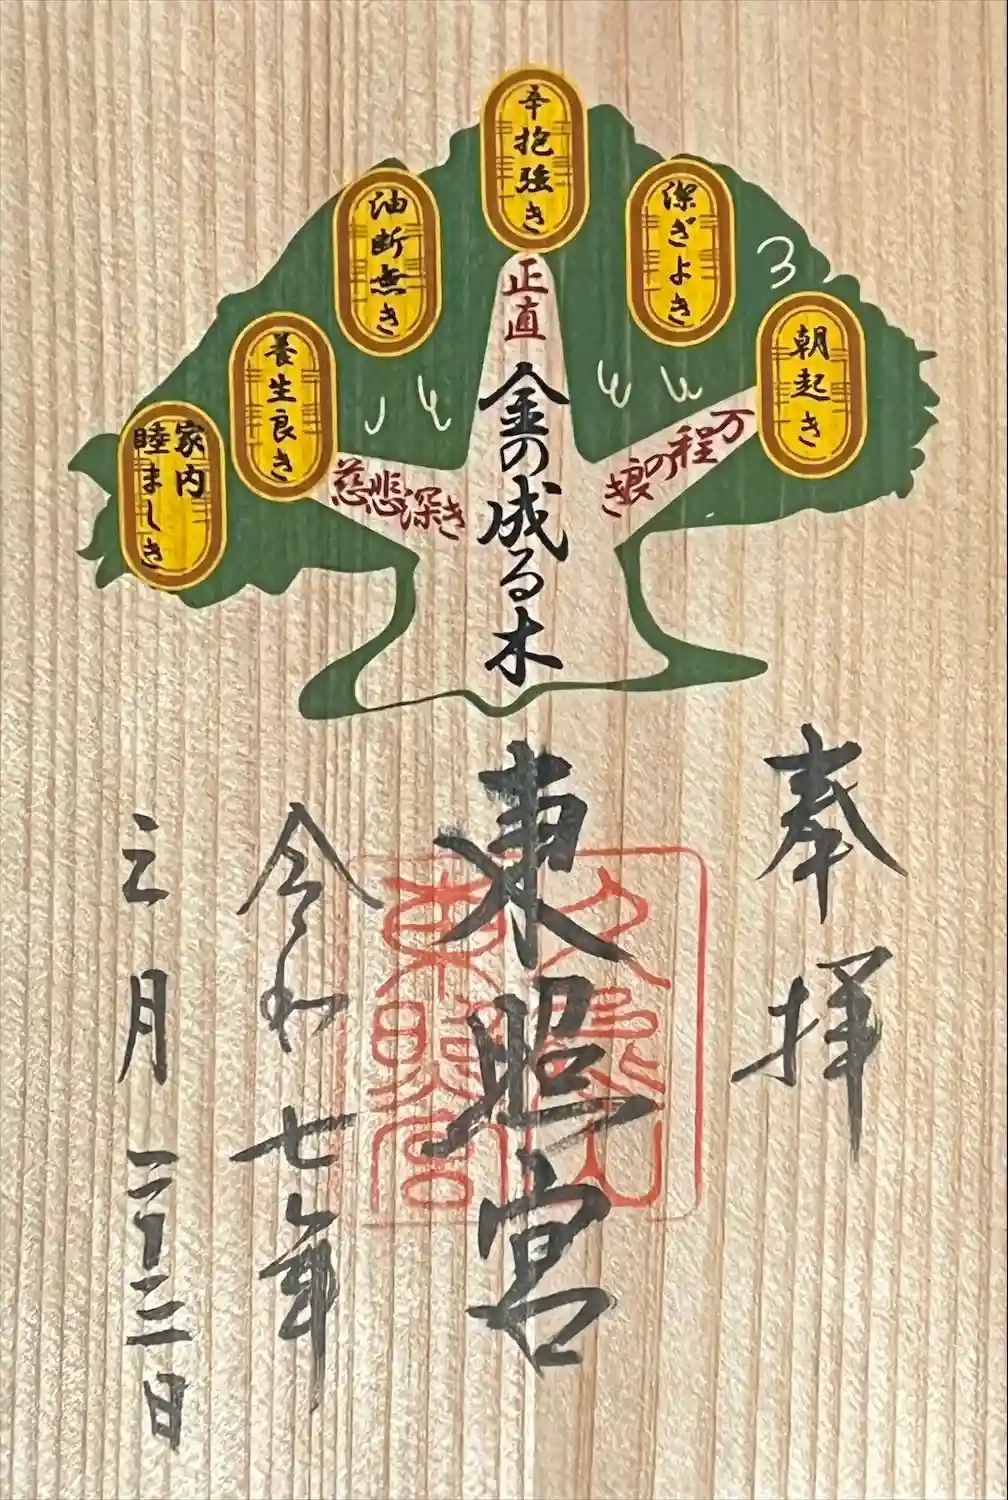 朝起き
潔ぎよき
辛抱強き
油断無き
養生良き
家内
睦ましき
正直
万程の良き
慈悲深き
金の成る木
奉拝
東照宮
久能山
東照宮
令和七年
三月二十三日